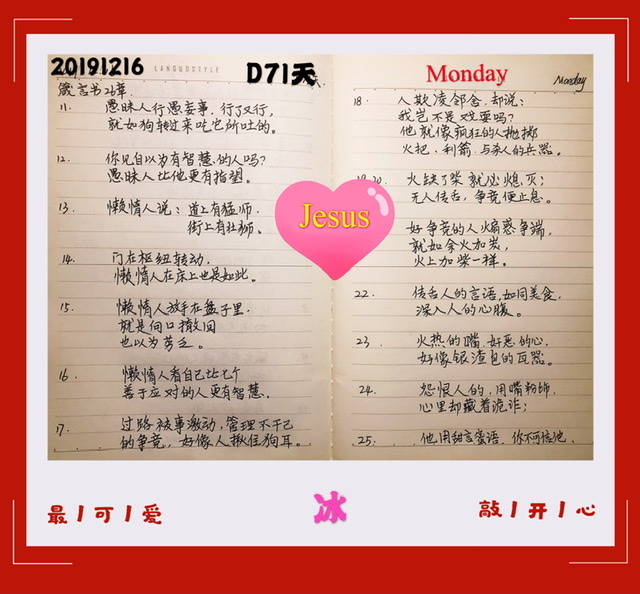 20191216
LANGUOSTYLE
D71天
Monday
Monday
箴言书26章
11. 愚昧人行愚妄事，行了又行，
就如狗转过来吃它所吐的。
12. 你见自以为有智慧的人吗？
愚昧人比他更有指望。
13. 懒惰人说：道上有猛狮，
街上有壮狮。
14. 门在枢纽转动，
懒惰人在床上也是如此。
15. 懒惰人放手在盘子里，
就是向口撤回
也以为劳乏。
16. 懒惰人看自己比七个
善于应对的人更有智慧。
17. 过路被事激动，管理不干己
的争竞，好像人揪住狗耳。
18. 人欺凌邻舍，却说：
我岂不是戏耍吗？
他就像疯狂的人抛掷
火把、利箭与杀人的兵器。
20. 火缺了柴就必熄灭；
无人传舌，争竞便止息。
好争竞的人煽惑争端，
就如余火加炭，
火上加柴一样。
22. 传舌人的言语，如同美食，
深入人的心腹。
23. 火热的嘴，奸恶的心，
好像银渣包的瓦器。
24. 怨恨人的，用嘴粉饰，
心里却藏着诡诈；
25. 他用甜言蜜语，你不可信他，
Jesus
最丨可丨爱
冰
敲丨开丨心